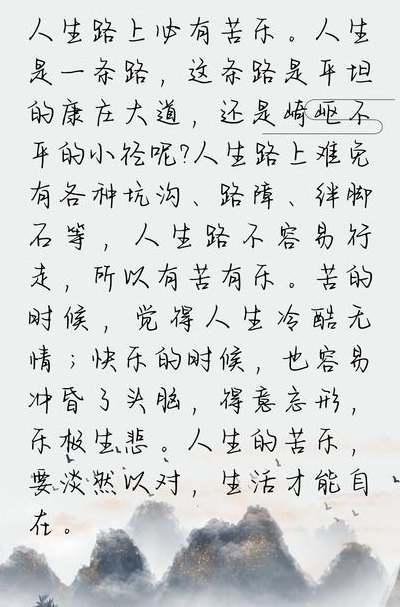 人生路上必有苦乐。人生
是一条路，这条路是平坦
的康庄大道，还是崎岖不
平的小径呢?人生路上难免
有各种坑沟、路障、绊脚
石等，人生路不容易行
走，所以有苦有乐。苦的
时候，觉得人生冷酷无
情；快乐的时候，也容易
冲昏了头脑，得意忘形，
乐极生悲。人生的苦乐，
要淡然以对，生活才能自
在。